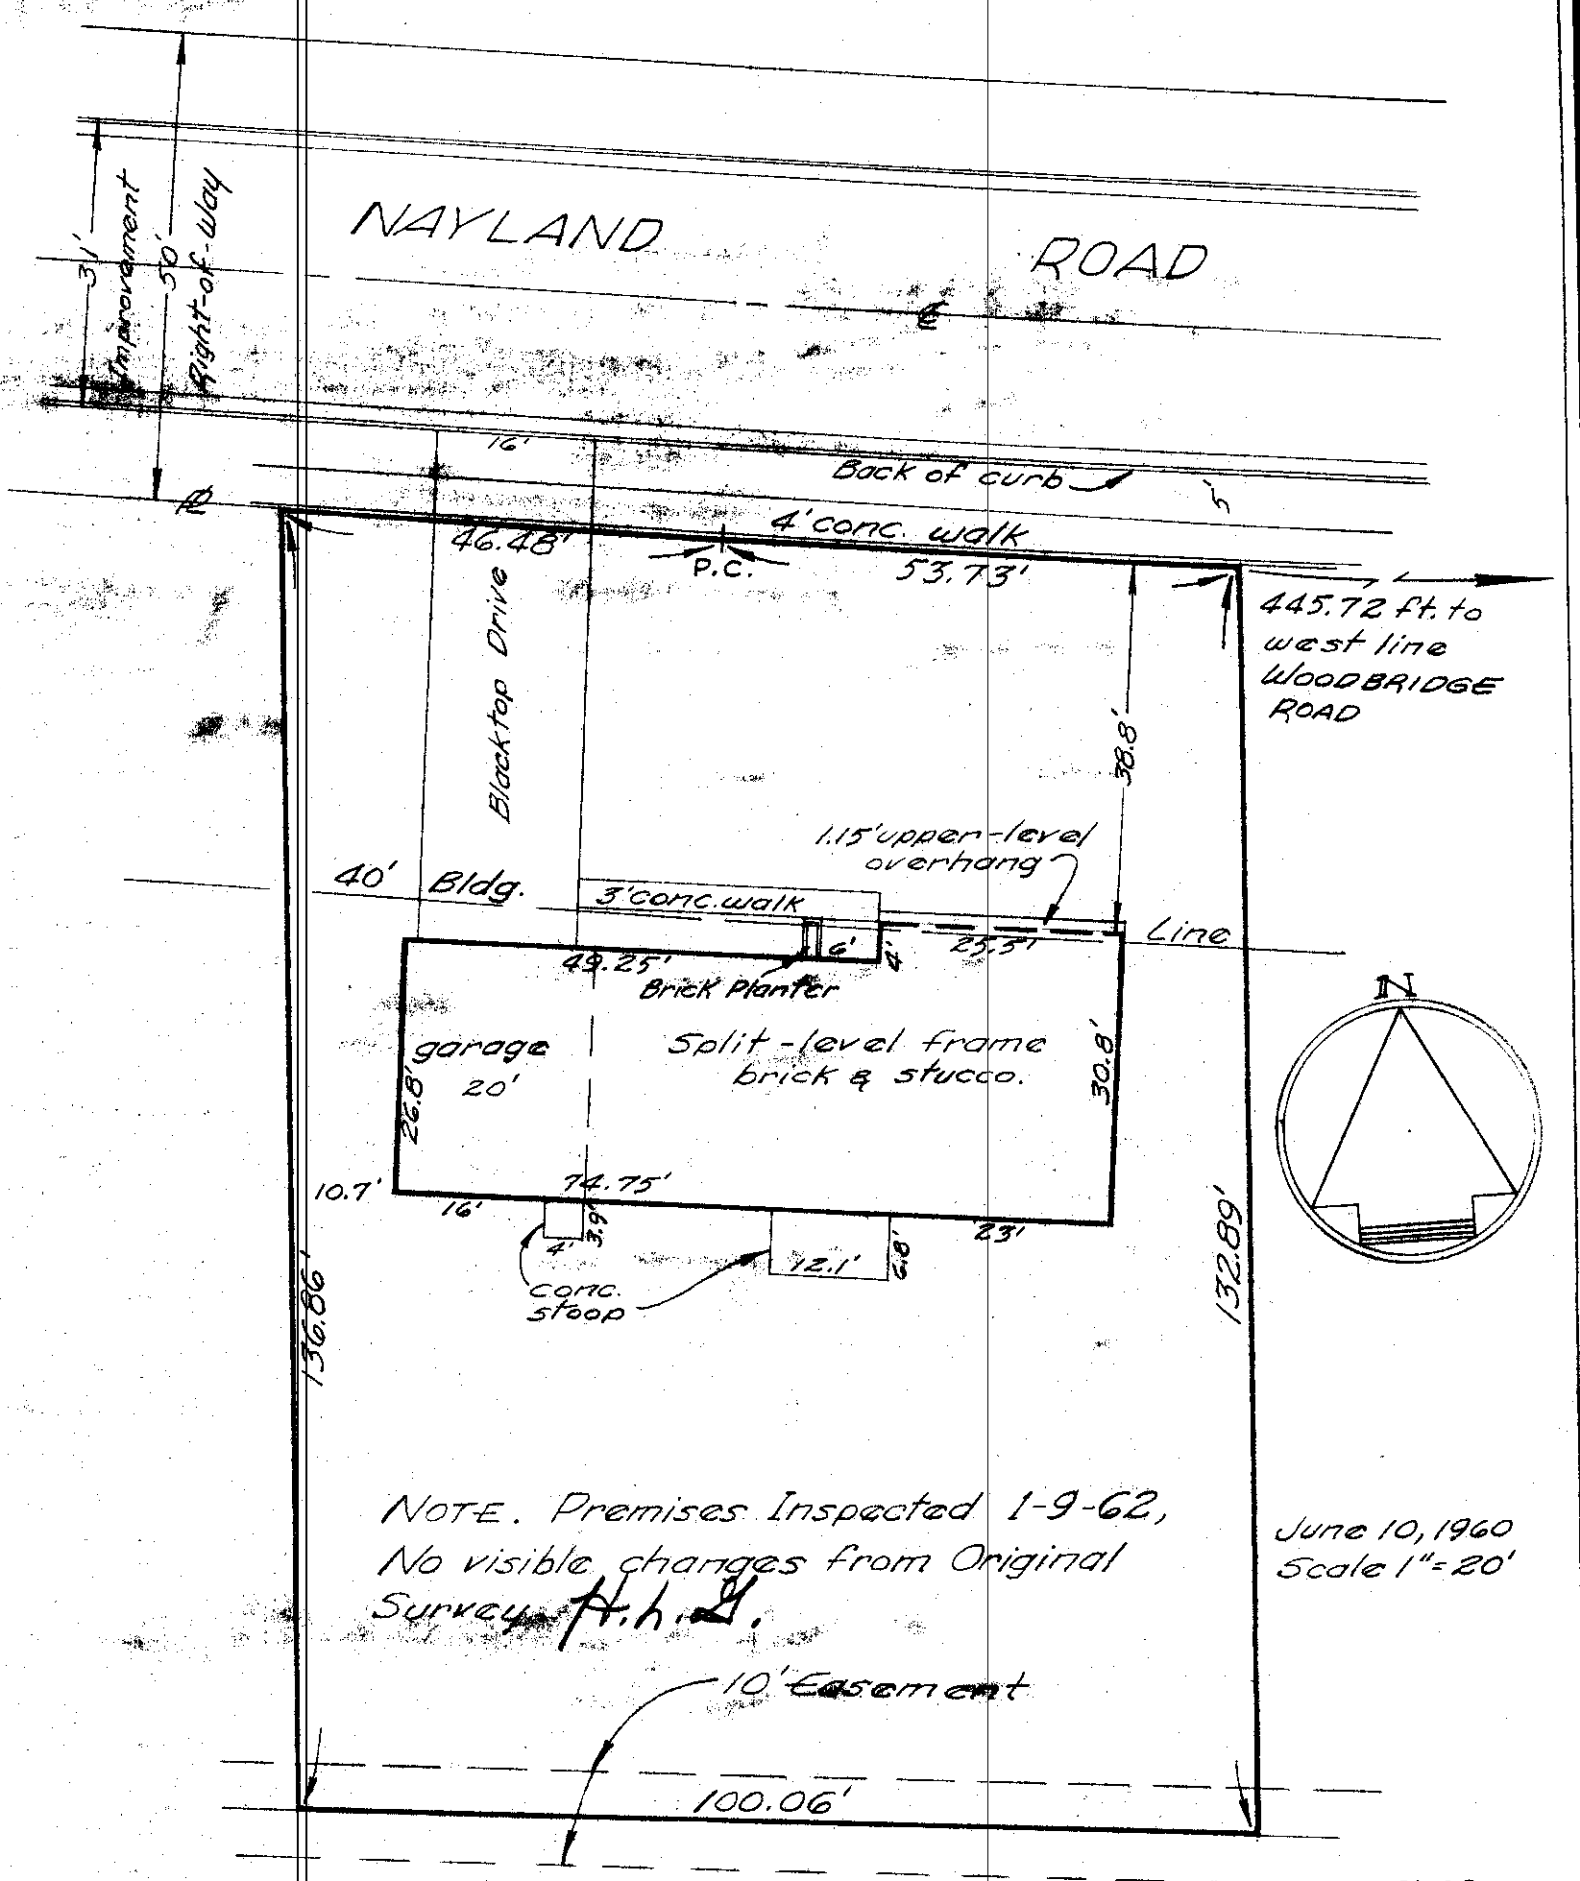 31'
Improvement
50'
Right-of-Way
NAYLAND ROAD
℄
16'
Back of curb
5'
℄
46.48'
4' conc. walk
P.C.
53.73'
445.72 ft. to
west line
WOODBRIDGE
ROAD
Blacktop Drive
38.8'
1.15' upper-level
overhang
40' Bldg. Line
3' conc. walk
49.25'
6'
4'
25.5'
Brick Planter
N
garage
20'
Split-level frame
brick & stucco.
26.8'
30.8'
10.7'
16'
74.75'
4'
3.9'
12.1'
6.8'
23'
conc.
stoop
136.86'
132.89'
NOTE. Premises Inspected 1-9-62,
No visible changes from Original
Survey H.h.
June 10, 1960
Scale 1"=20'
10' Easement
100.06'